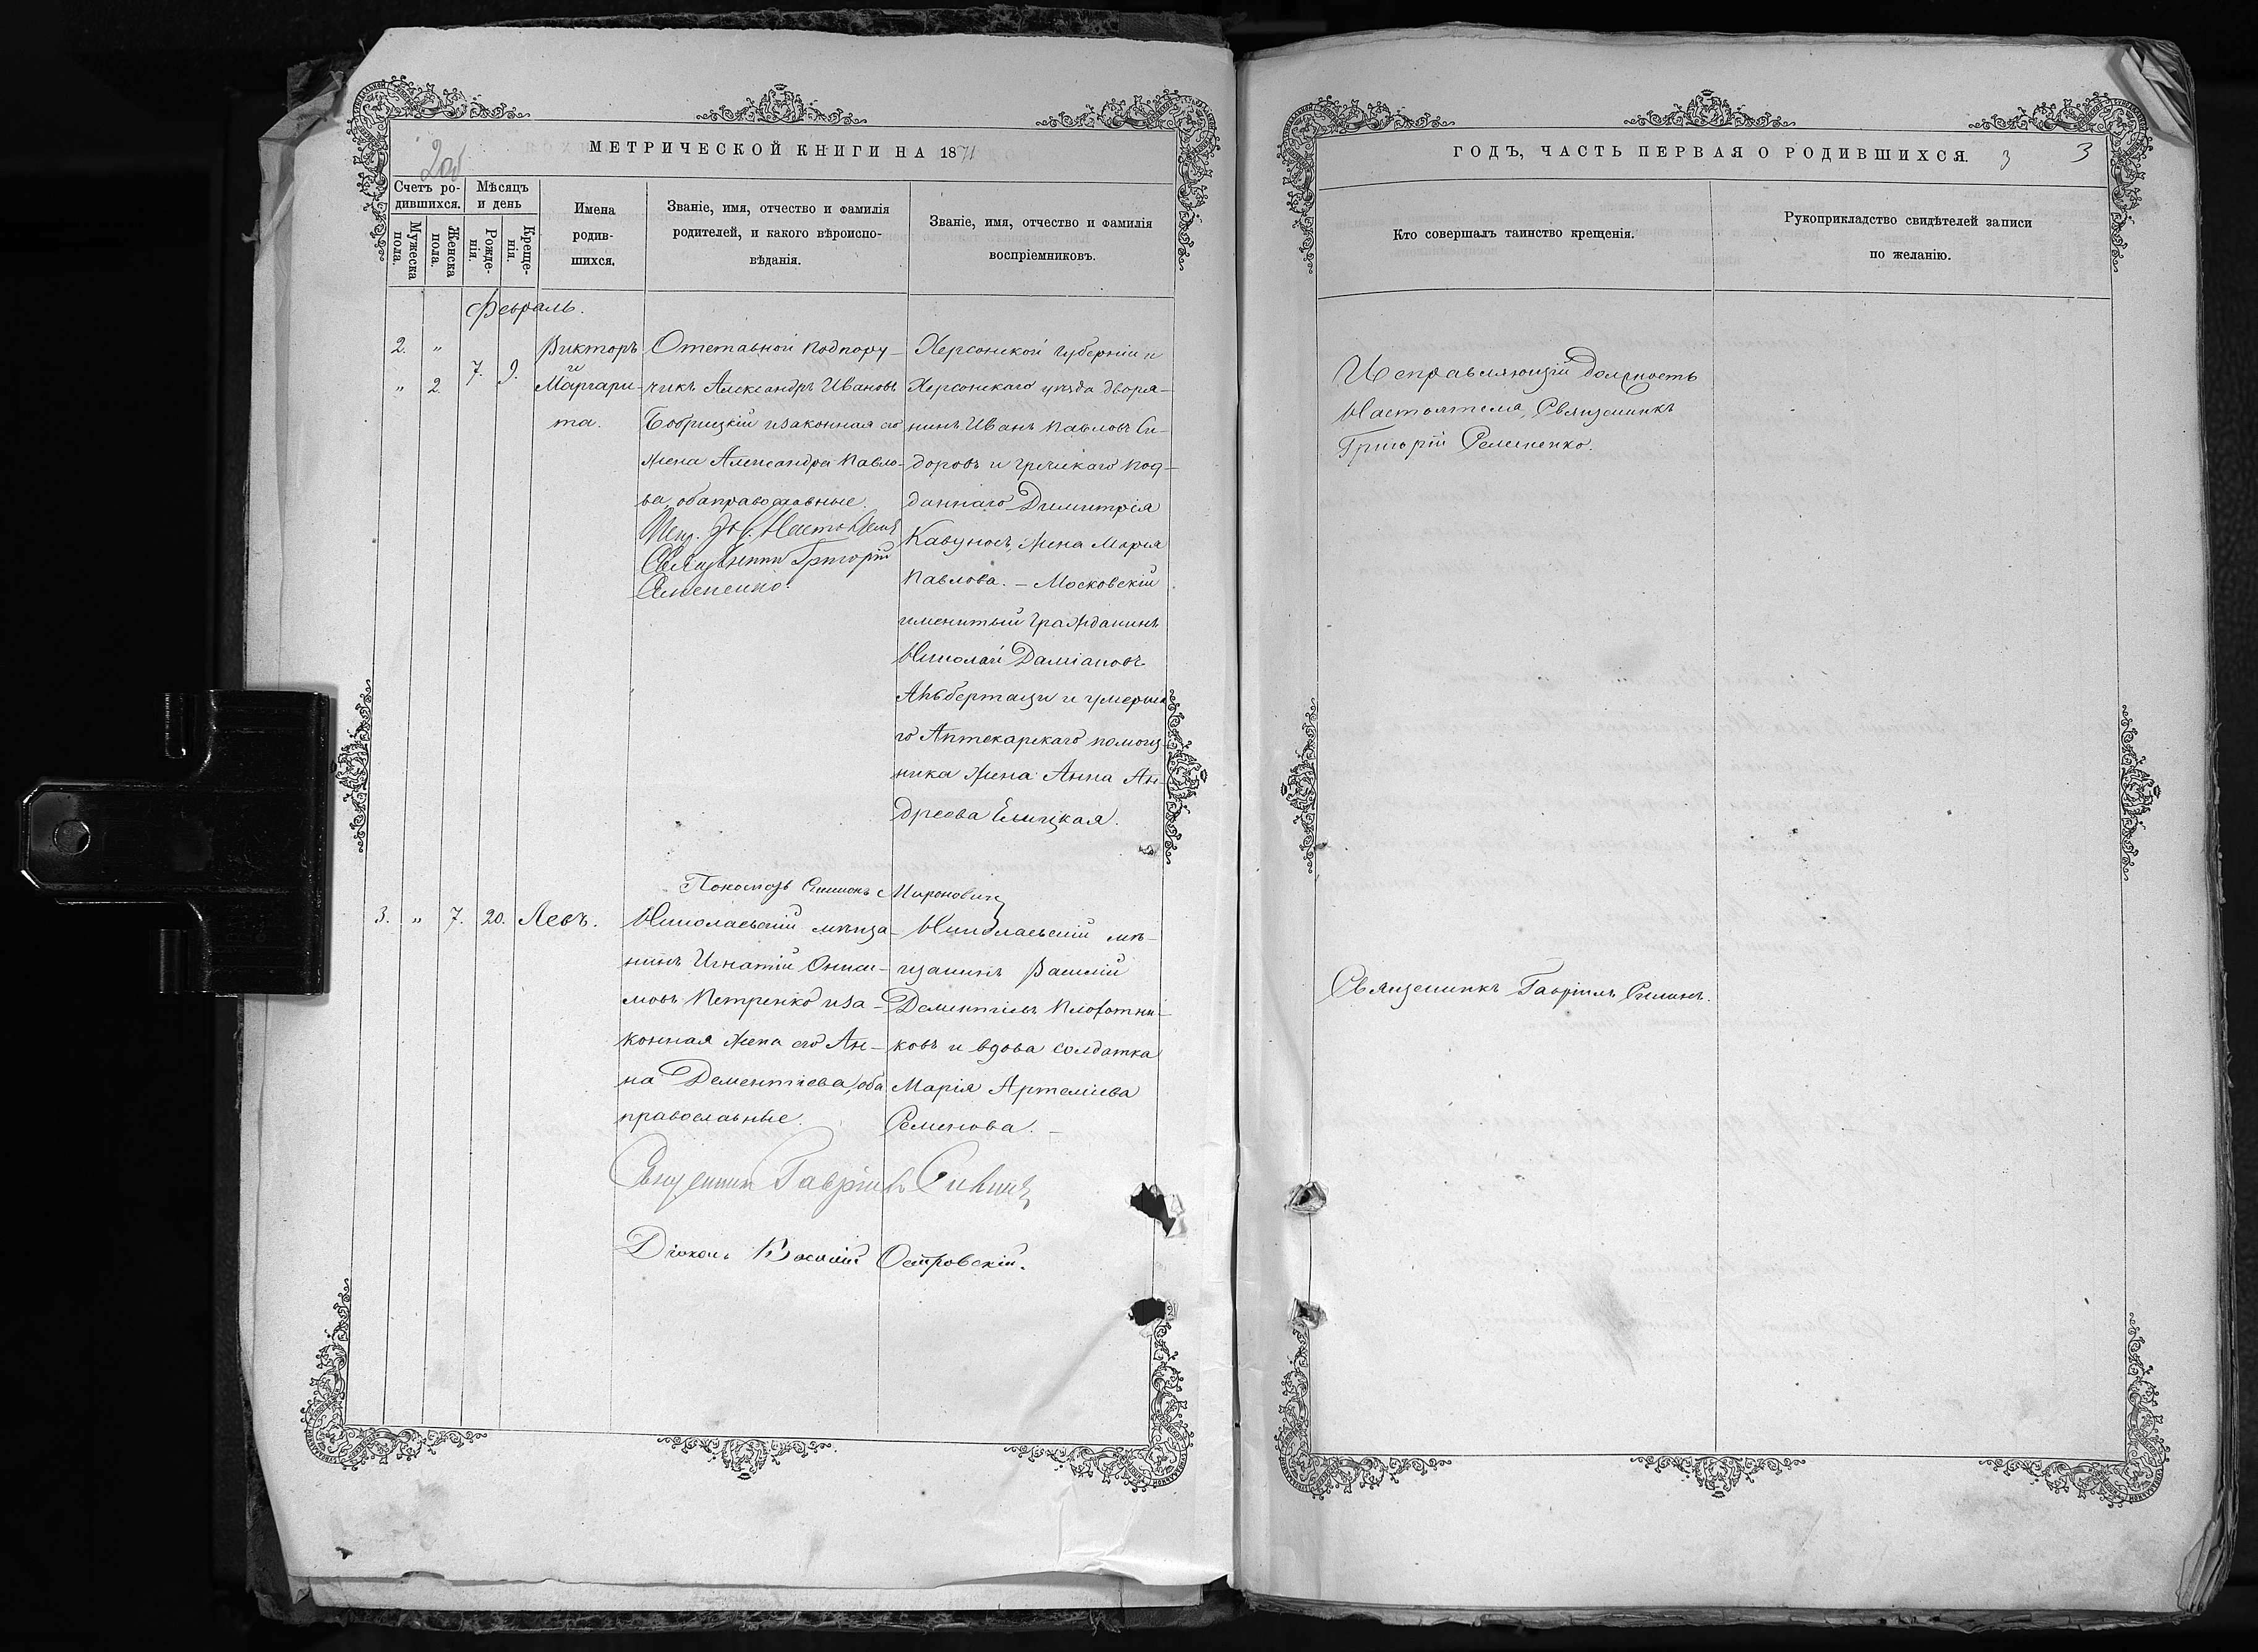 2об
МЕТРИЧЕСКОЙ КНИГИ НА 1871
Счетъ ро-
дившихся.
Мѣсяцъ
и день
Мужеска
пола.
Женска
пола.
Рожде-
нія.
Креще-
нія.
Имена
родив-
шихся.
Званіе, имя, отчество и фамилія
родителей, и какого вѣроиспо-
вѣданія.
Званіе, имя, отчество и фамилія
воспріемниковъ.
Февраль.
2. "
" 2.
7. 9.
Викторъ
и
Маргари-
та.
Отставной подпору-
чикъ Александръ Ивановъ
Бобрицкій и законная его
жена Александра Павло-
ва, оба православные.
Исп. Д. Настоятеля
Священникъ Григорій
Семененко.
Херсонской губерніи и
Херсонскаго уѣзда дворя-
нинъ Иванъ Павловъ Си-
доровъ и греческаго под-
даннаго Димитрія
жена Марія
Павлова. – Московскій
именитый гражданинъ
Николай Даміановъ
и умерша
го Аптекарскаго помощ-
ника жена Анна Ан-
дреева Елицкая.
Мироновичъ
3. " 7. 20. Левъ.
Николаевскій мѣща-
нинъ Игнатій Ониси-
мовъ Петренко и за-
конная жена его Ан-
на Дементіева, оба
православные.
Николаевскій мѣ-
щанинъ Василій
Дементіевъ Плотни-
ковъ и вдова солдатка
Марія Артеміева
Семенова. –
Священникъ Гавріилъ Силинъ
Діаконъ Василій Островскій.
ГОДЪ, ЧАСТЬ ПЕРВАЯ О РОДИВШИХСЯ. 3 3
Кто совершалъ таинство крещенія.
Рукоприкладство свидѣтелей записи
по желанію.
Исправляющій должность
Настоятеля, Священникъ
Григорій Семененко.
Священникъ Гавріилъ Силинъ.